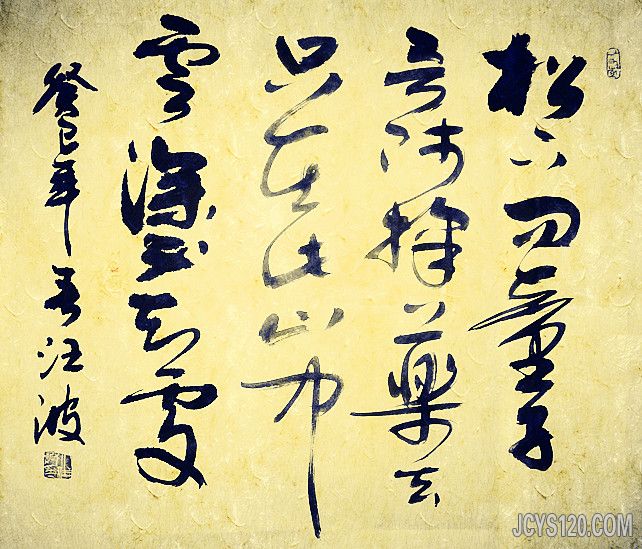 松下问童子
言师採藥去
只在此山中
雲深不知處
癸巳年春汪波
JCYS120.COM